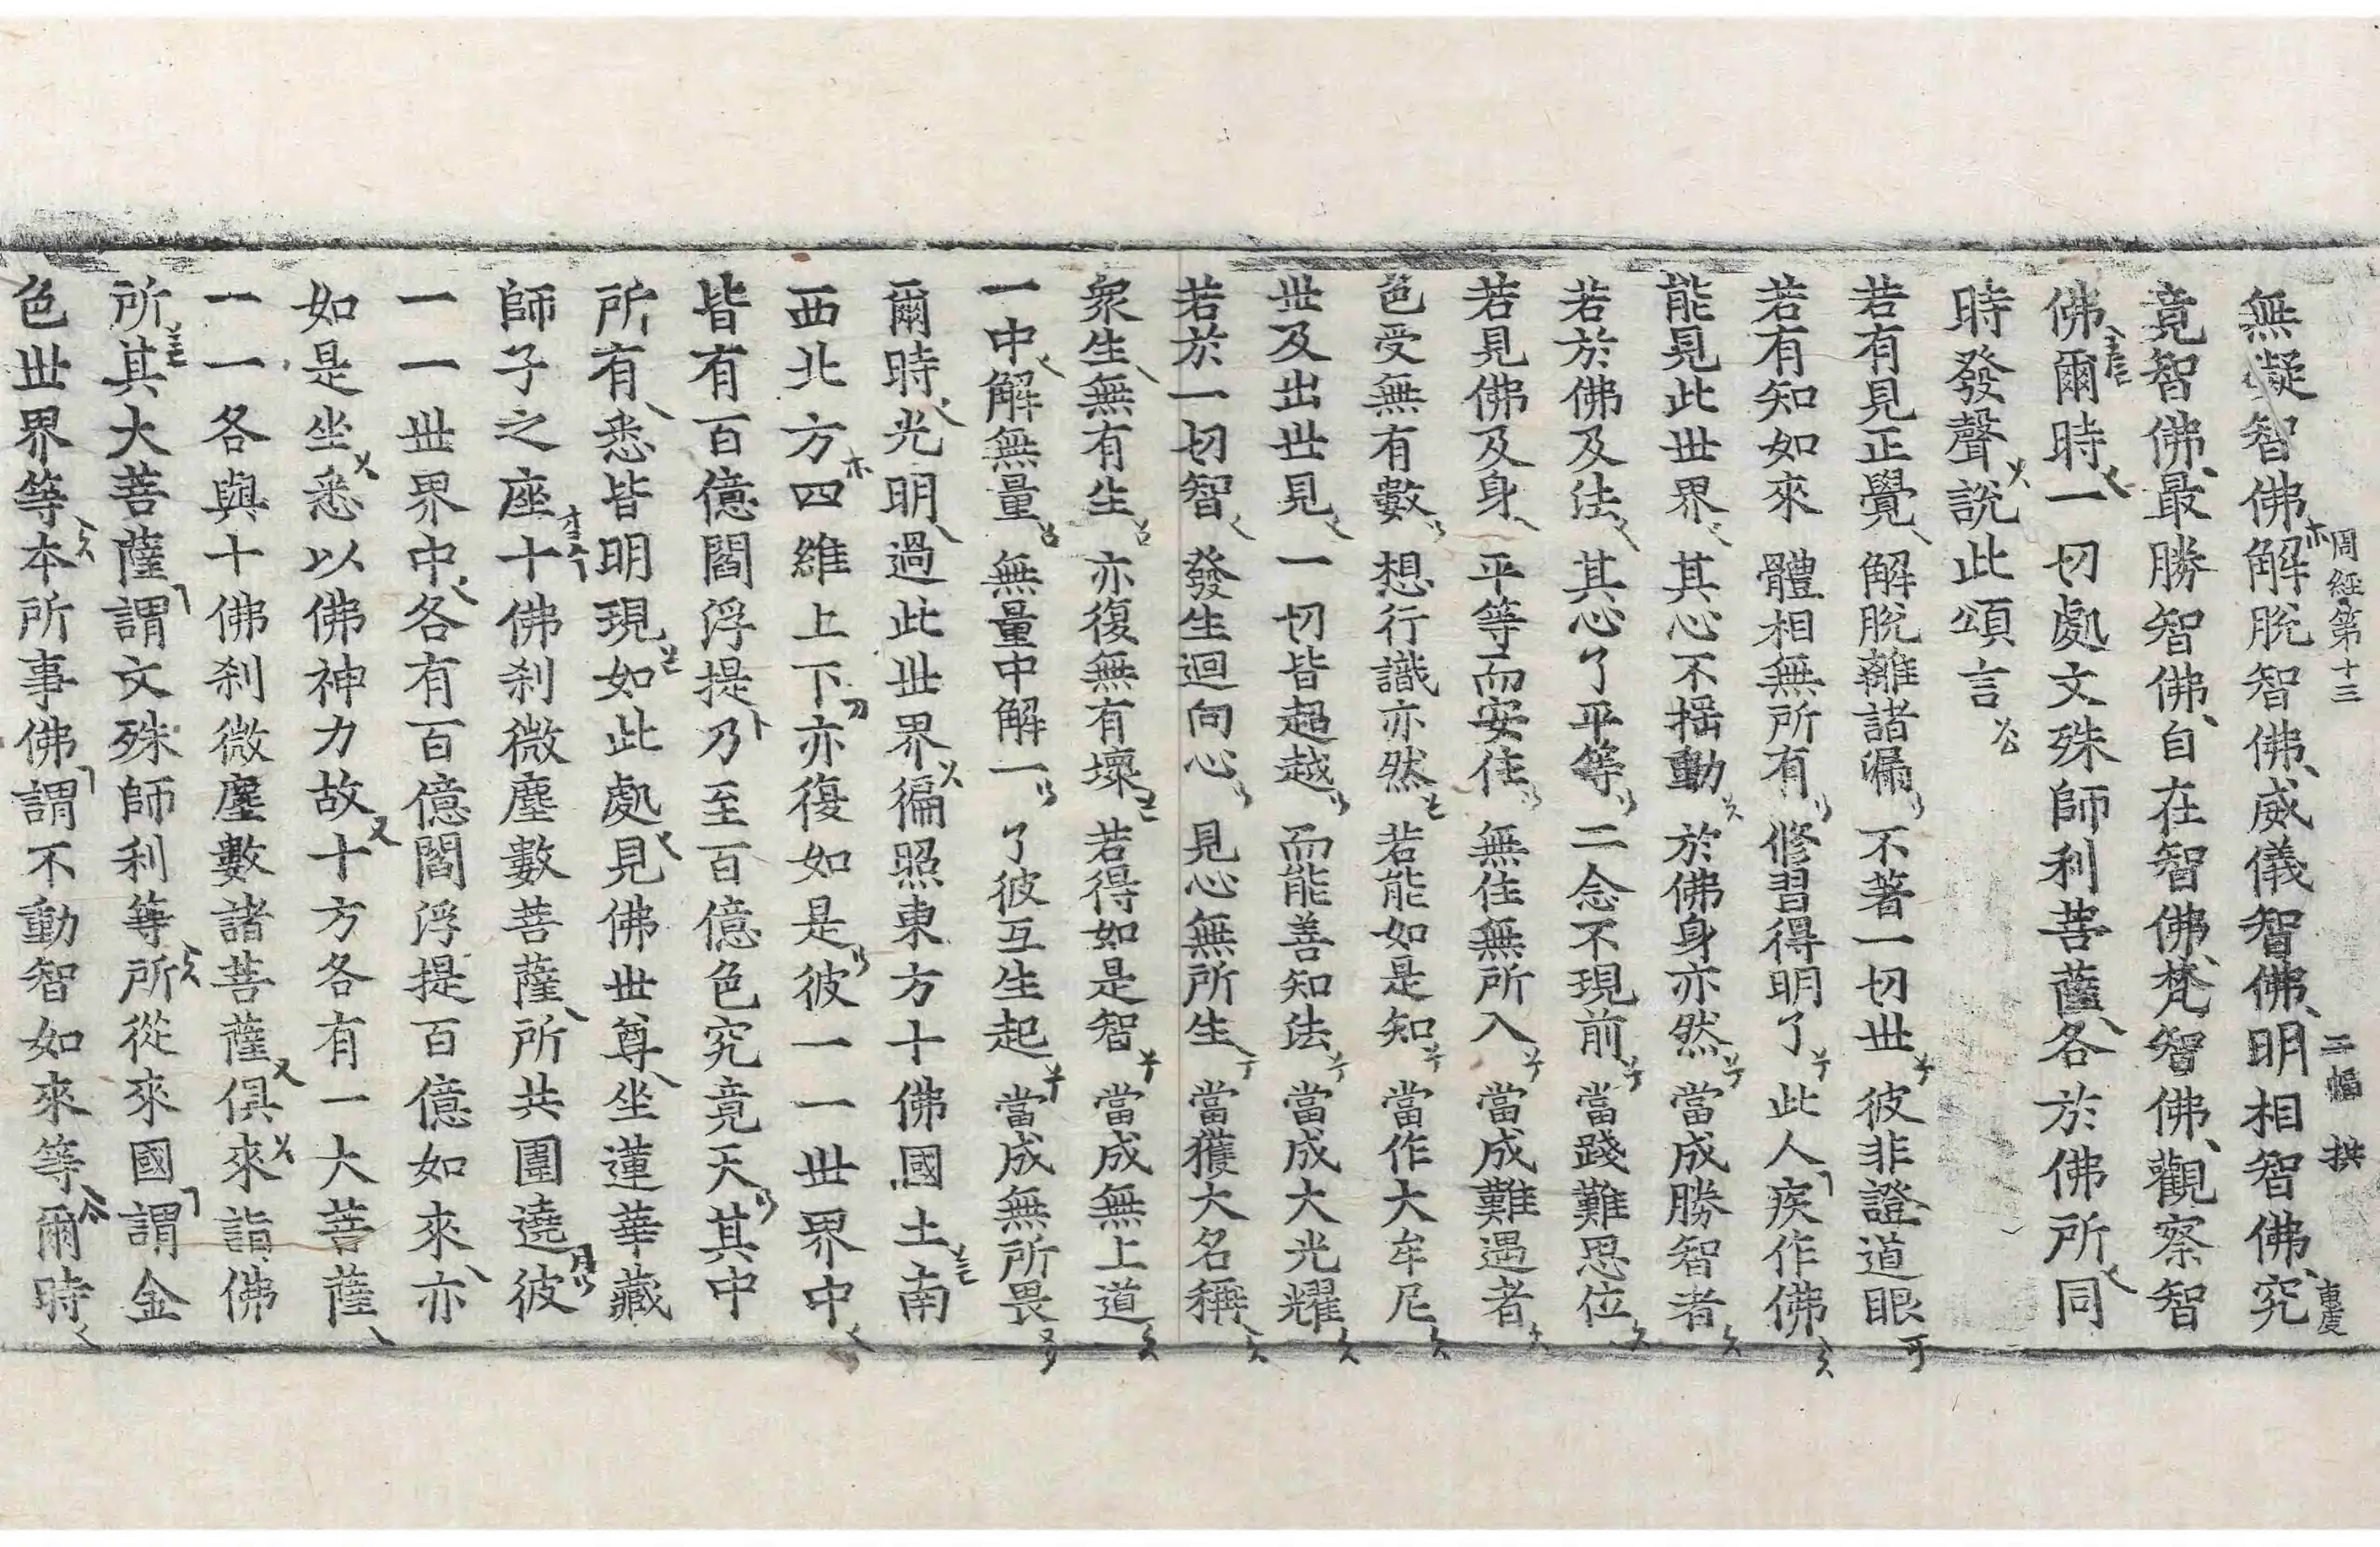 周經第十三 二幅 拱 東虔
無礙智佛解脫智佛威儀智佛明相智佛究
竟智佛最勝智佛自在智佛梵智佛觀察智
佛爾時一切處文殊師利菩薩各於佛所同
時發聲說此頌言
若有見正覺 解脫離諸漏 不著一切世 彼非證道眼
若有知如來 體相無所有 修習得明了 此人疾作佛
能見此世界 其心不搖動 於佛身亦然 當成勝智者
若於佛及法 其心了平等 二念不現前 當踐難思位
若見佛及身 平等而安住 無住無所入 當成難遇者
色受無有數 想行識亦然 若能如是知 當作大牟尼
世及出世見 一切皆超越 而能善知法 當成大光耀
若於一切智 發生迴向心 見心無所生 當獲大名稱
衆生無有生 亦復無有壞 若得如是智 當成無上道
一中解無量 無量中解一 了彼互生起 當成無所畏
爾時光明過此世界徧照東方十佛國土南
西北方四維上下亦復如是彼一一世界中
皆有百億閻浮提乃至百億色究竟天其中
所有悉皆明現如此處見佛世尊坐蓮華藏
師子之座十佛刹微塵數菩薩所共圍遶彼
一一世界中各有百億閻浮提百億如來亦
如是坐悉以佛神力故十方各有一大菩薩
一一各與十佛刹微塵數諸菩薩俱來詣佛
所其大菩薩謂文殊師利等所從來國謂金
色世界等本所事佛謂不動智如來等爾時